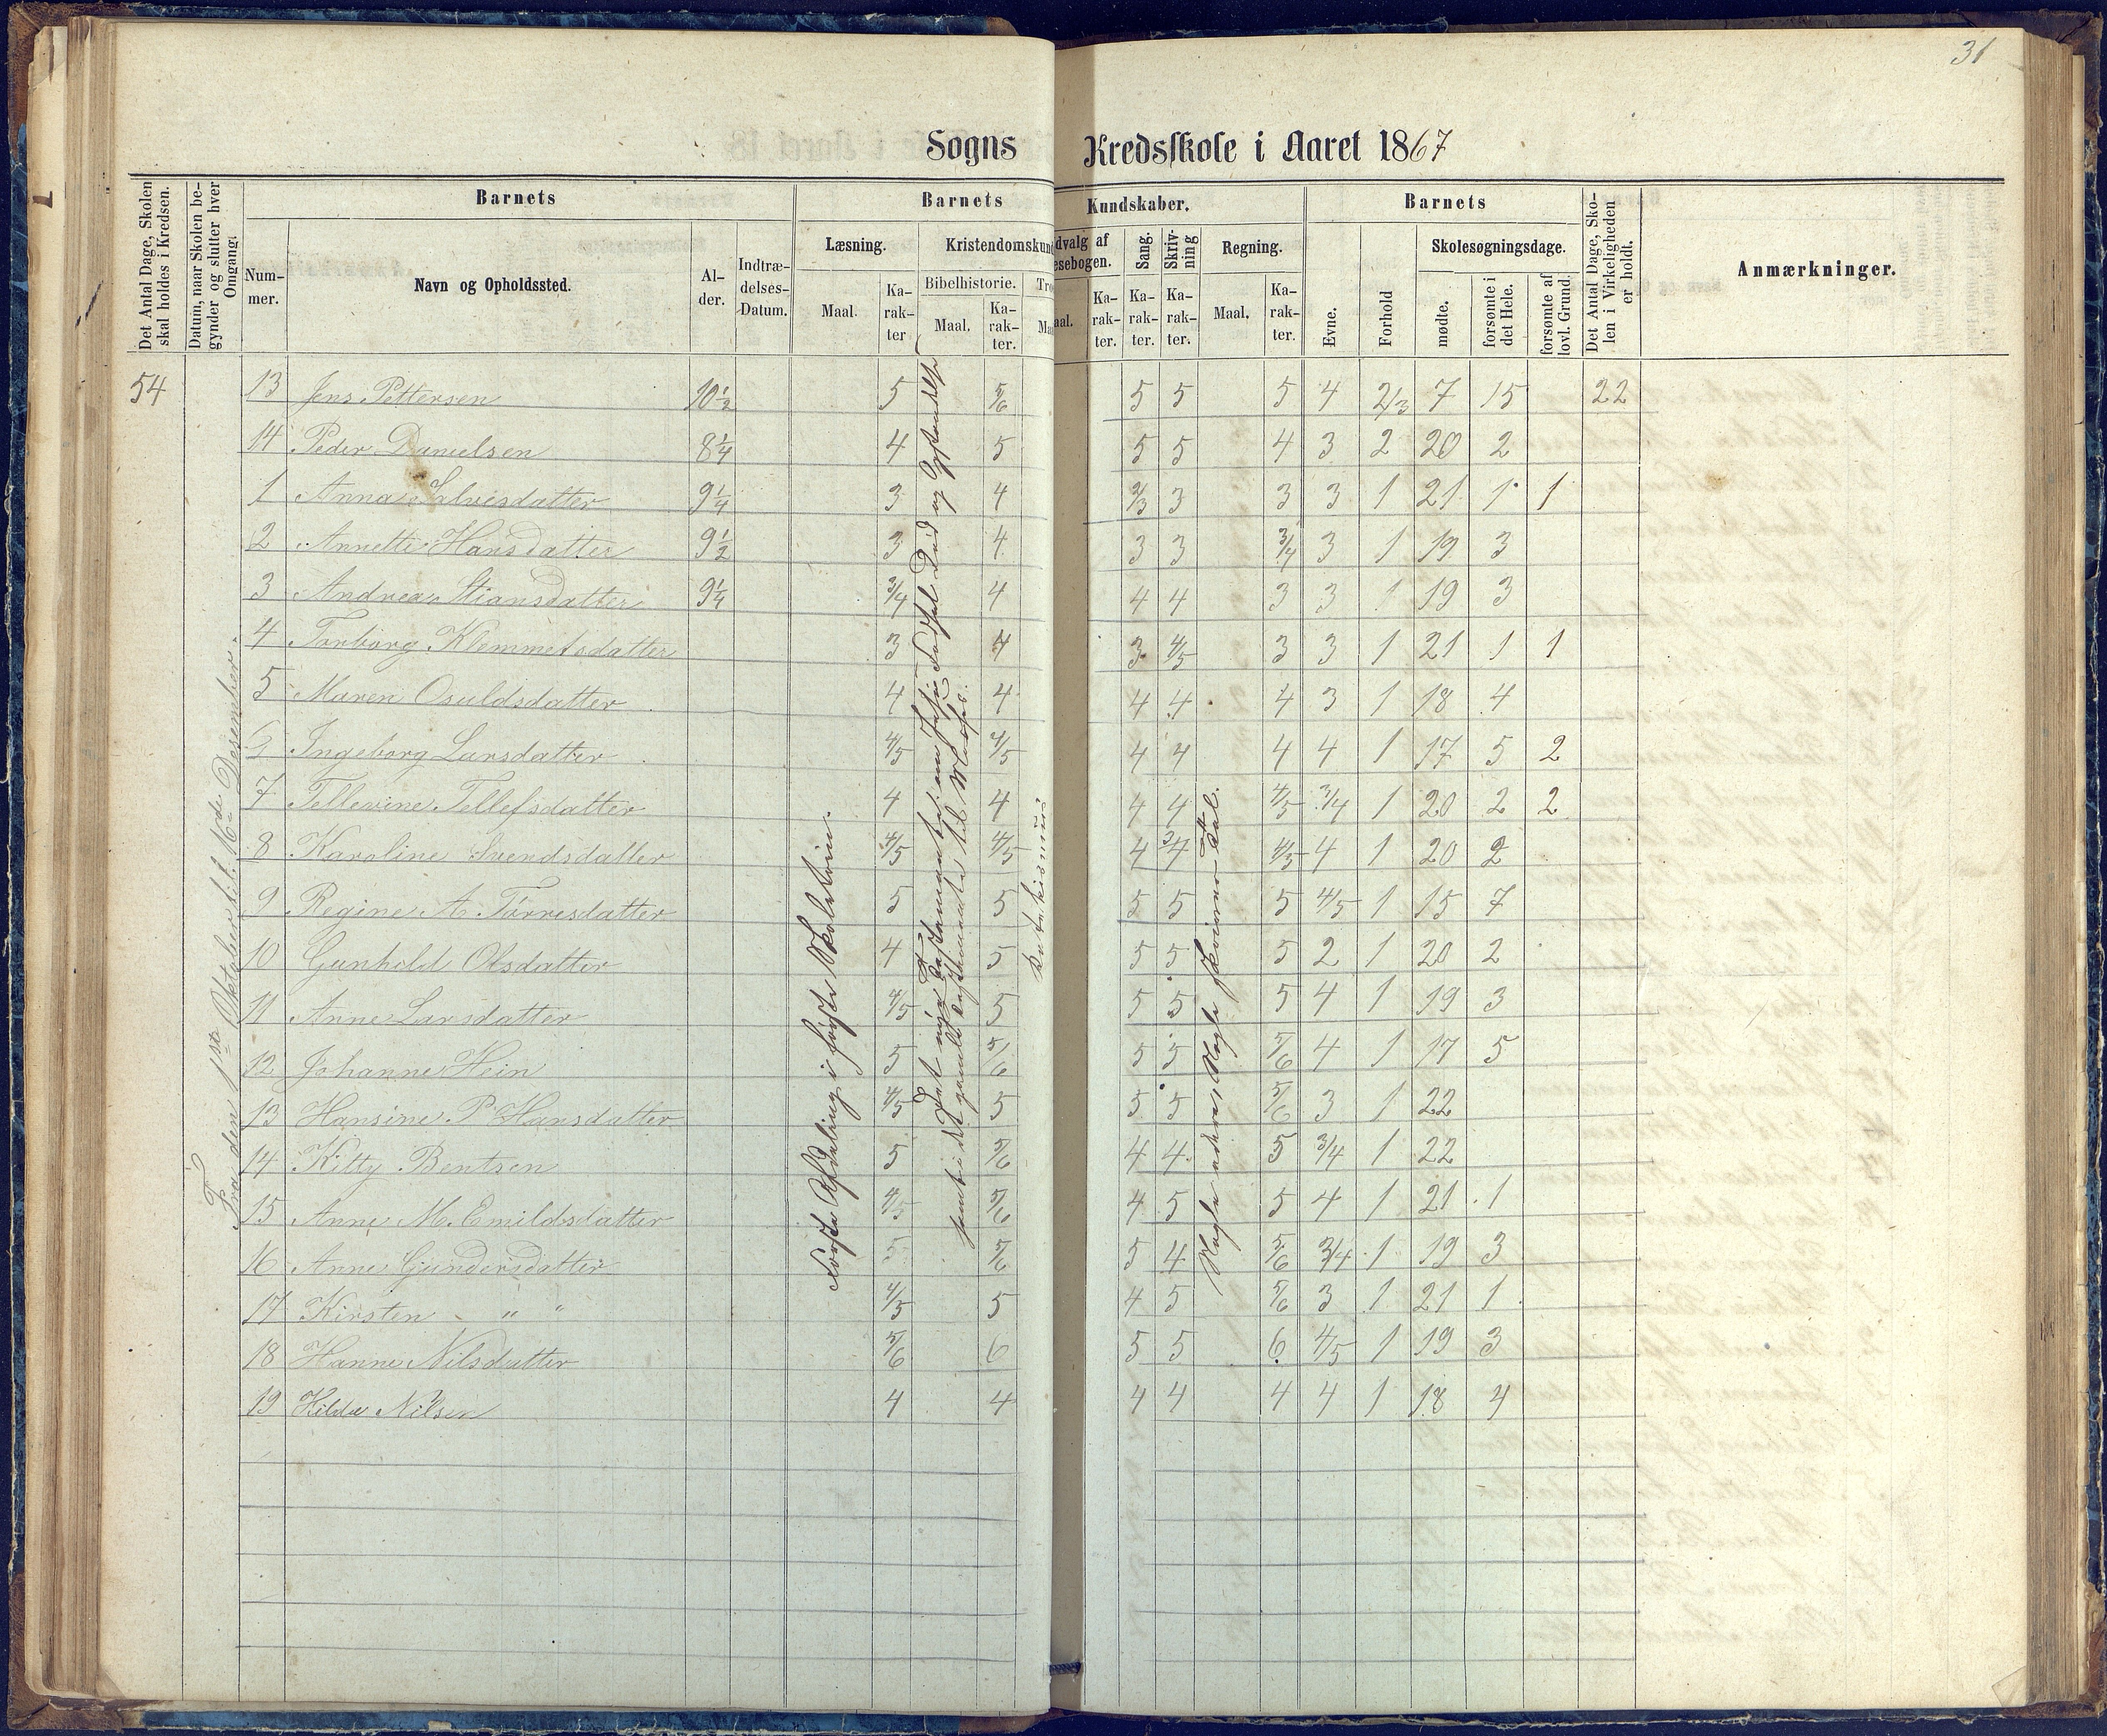 31
Sogns Kredsskole i Aaret 1867
Det Antal Dage, Skolen skal holdes i Kredsen.
Datum, naar Skolen begynder og slutter hver Omgang.
Barnets
Nummer.
Navn og Opholdssted.
Alder.
Indtrædelses-Datum.
Barnets Kundskaber.
Læsning.
Maal.
Karakter
Kristendomskund
Bibelhistorie.
Maal.
Karakter.
Tro
Maa
dvalg af
esebogen.
aal.
Karakter.
Sang.
Karakter.
Skrivning
Karakter.
Regning.
Maal.
Karakter.
Barnets
Evne.
Forhold
Skolesøgningsdage.
mødte.
forsømte i det Hele.
forsømte af lovl. Grund.
Det Antal Dage, Skolen i Virkeligheden er holdt.
Anmærkninger.
54 13 Jens Pettersen 10 1/2 5 5/6 5 5 5 4 2/3 7 15 22
14 Peder Danielsen 8 1/4 4 5 5 5 4 3 2 20 2
1 Anna Salvesdatter 9 1/4 3 4 2/3 3 3 3 1 21 1 1
2 Annette Hansdatter 9 1/2 3 4 3 3 3/4 3 1 19 3
3 Andrea Stiansdatter 9 1/4 3/4 4 4 4 3 3 1 19 3
4 Torborg Klemmetsdatter 3 4 3 4/5 3 3 1 21 1 1
5 Maren Osuldsdatter 4 4 4 4 4 3 1 18 4
6 Ingeborg Larsdatter 4/5 4/5 4 4 4 4 1 17 5 2
7 Tellevine Tellefsdatter 4 4 4 4 4/5 3/4 1 20 2 2
8 Karoline Svendsdatter 4/5 4/5 4 3/4 4/5 4 1 20 2
9 Regine A. Tørresdatter 5 5 5 5 5 4/5 1 15 7
10 Gunhild Olsdatter 4 5 5 5 5 2 1 20 2
11 Anne Larsdatter 4/5 5 5 5 5 4 1 19 3
12 Johanne Hein 5 5/6 5 5 5/6 4 1 17 5
13 Hansine P Hansdatter 4/5 5 5 5 5/6 3 1 22
14 Kitty Bentsen 5 5/6 4 4 5 3/4 1 22
15 Anne M. Emildsdatter 4/5 5/6 4 5 5 4 1 21 1
16 Anne Gundersdatter 5 5/6 5 4 5/6 3/4 1 19 3
17 Kirsten " " 4/5 5 4 5 5/6 3 1 21 1
18 Hanne Nilsdatter 5/6 6 5 5 6 4/5 1 19 3
19 Hilda Nilsen 4 4 4 4 4 4 1 18 4
Fra den 1ste Oktober til 16de Desember.
Første Afdeling i første Skoletrin.
Det nye Testamente: om Jesu Fødsel Død og Opstandelse
samt i det gamle Testamente til Moses.
Katekismus
Nogle enkere Nogle firsifrede Tal.